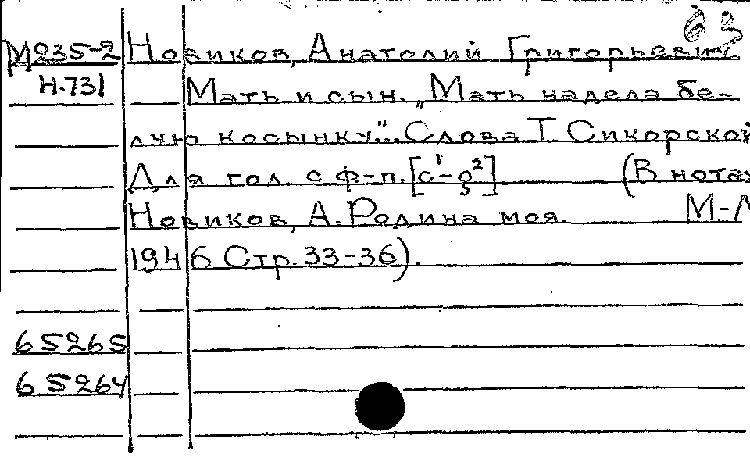 М235-2 Новиков, Анатолий Григорьевич
Н.731 Мать и сын. „Мать надела бе-
лую косынку"... Слова Т. Сикорской
Для гол. с ф-п. [c¹-g²] (В нотах
Новиков, А. Родина моя. М-Л
1946 Стр. 33-36).
65265
65264